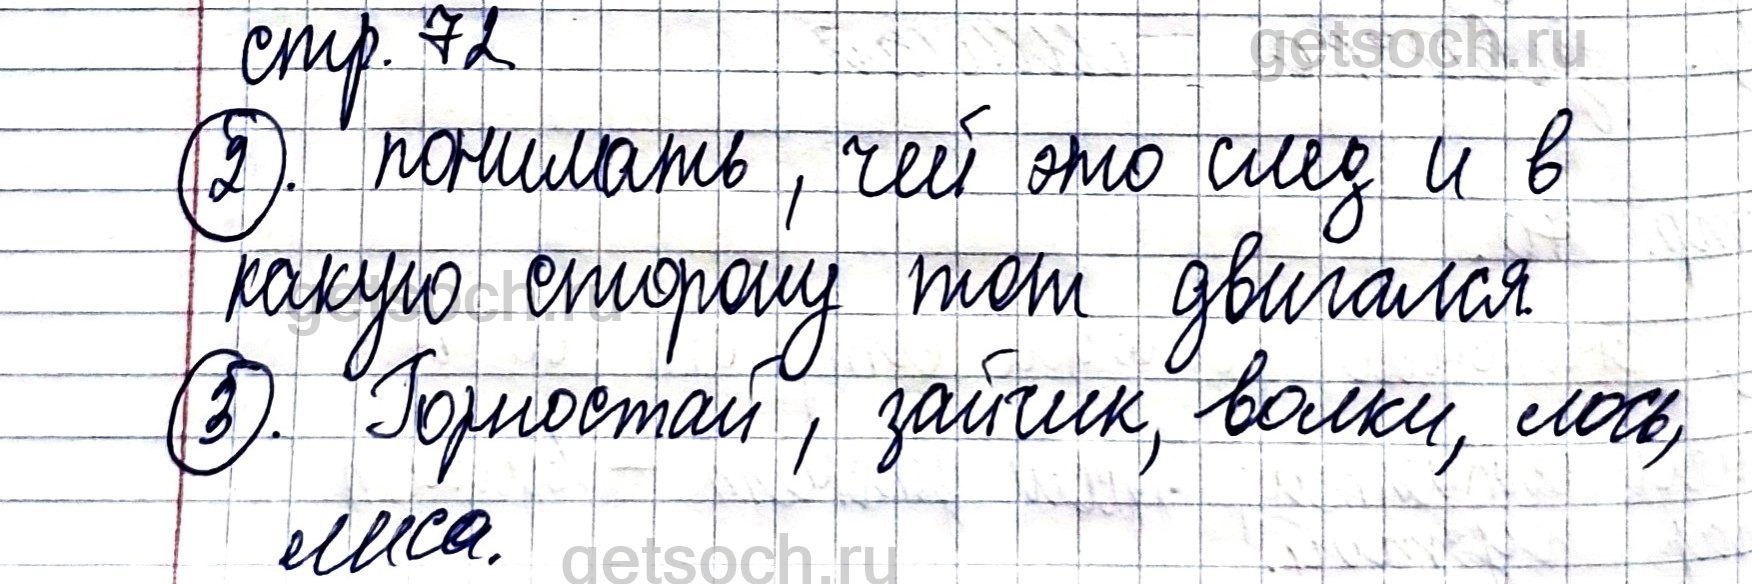 стр. 72
getsoch.ru
2. понимать, чей это след и в
какую сторону тот двигался.
getsoch.ru
3. Горностай, зайчик, волки, лось,
лиса.
getsoch.ru